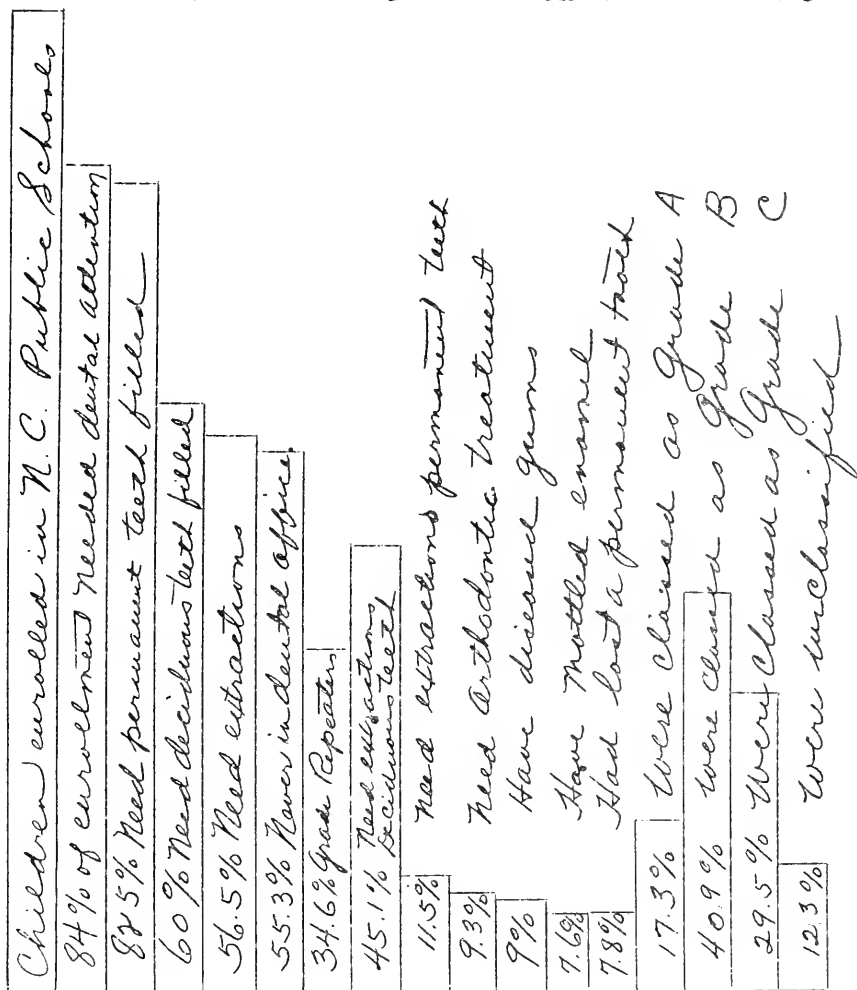 Children enrolled in N.C. Public Schools
84% of enrollment needed dental attention
82.5% Need permanent teeth filled
60% Need deciduous teeth filled
56.5% Need extractions
55.3% Never in dental office.
34.6% Grade Repeaters
45.1% Need extractions
Deciduous teeth
11.5% need extractions permanent teeth
9.3% need Orthodontic treatment
9% Have diseased gums
7.6% Have Mottled enamel
7.8% Had lost a permanent tooth
17.3% Were classed as Grade A
40.9% Were classed as Grade B
29.5% Were Classed as Grade C
12.3% Were unclassified